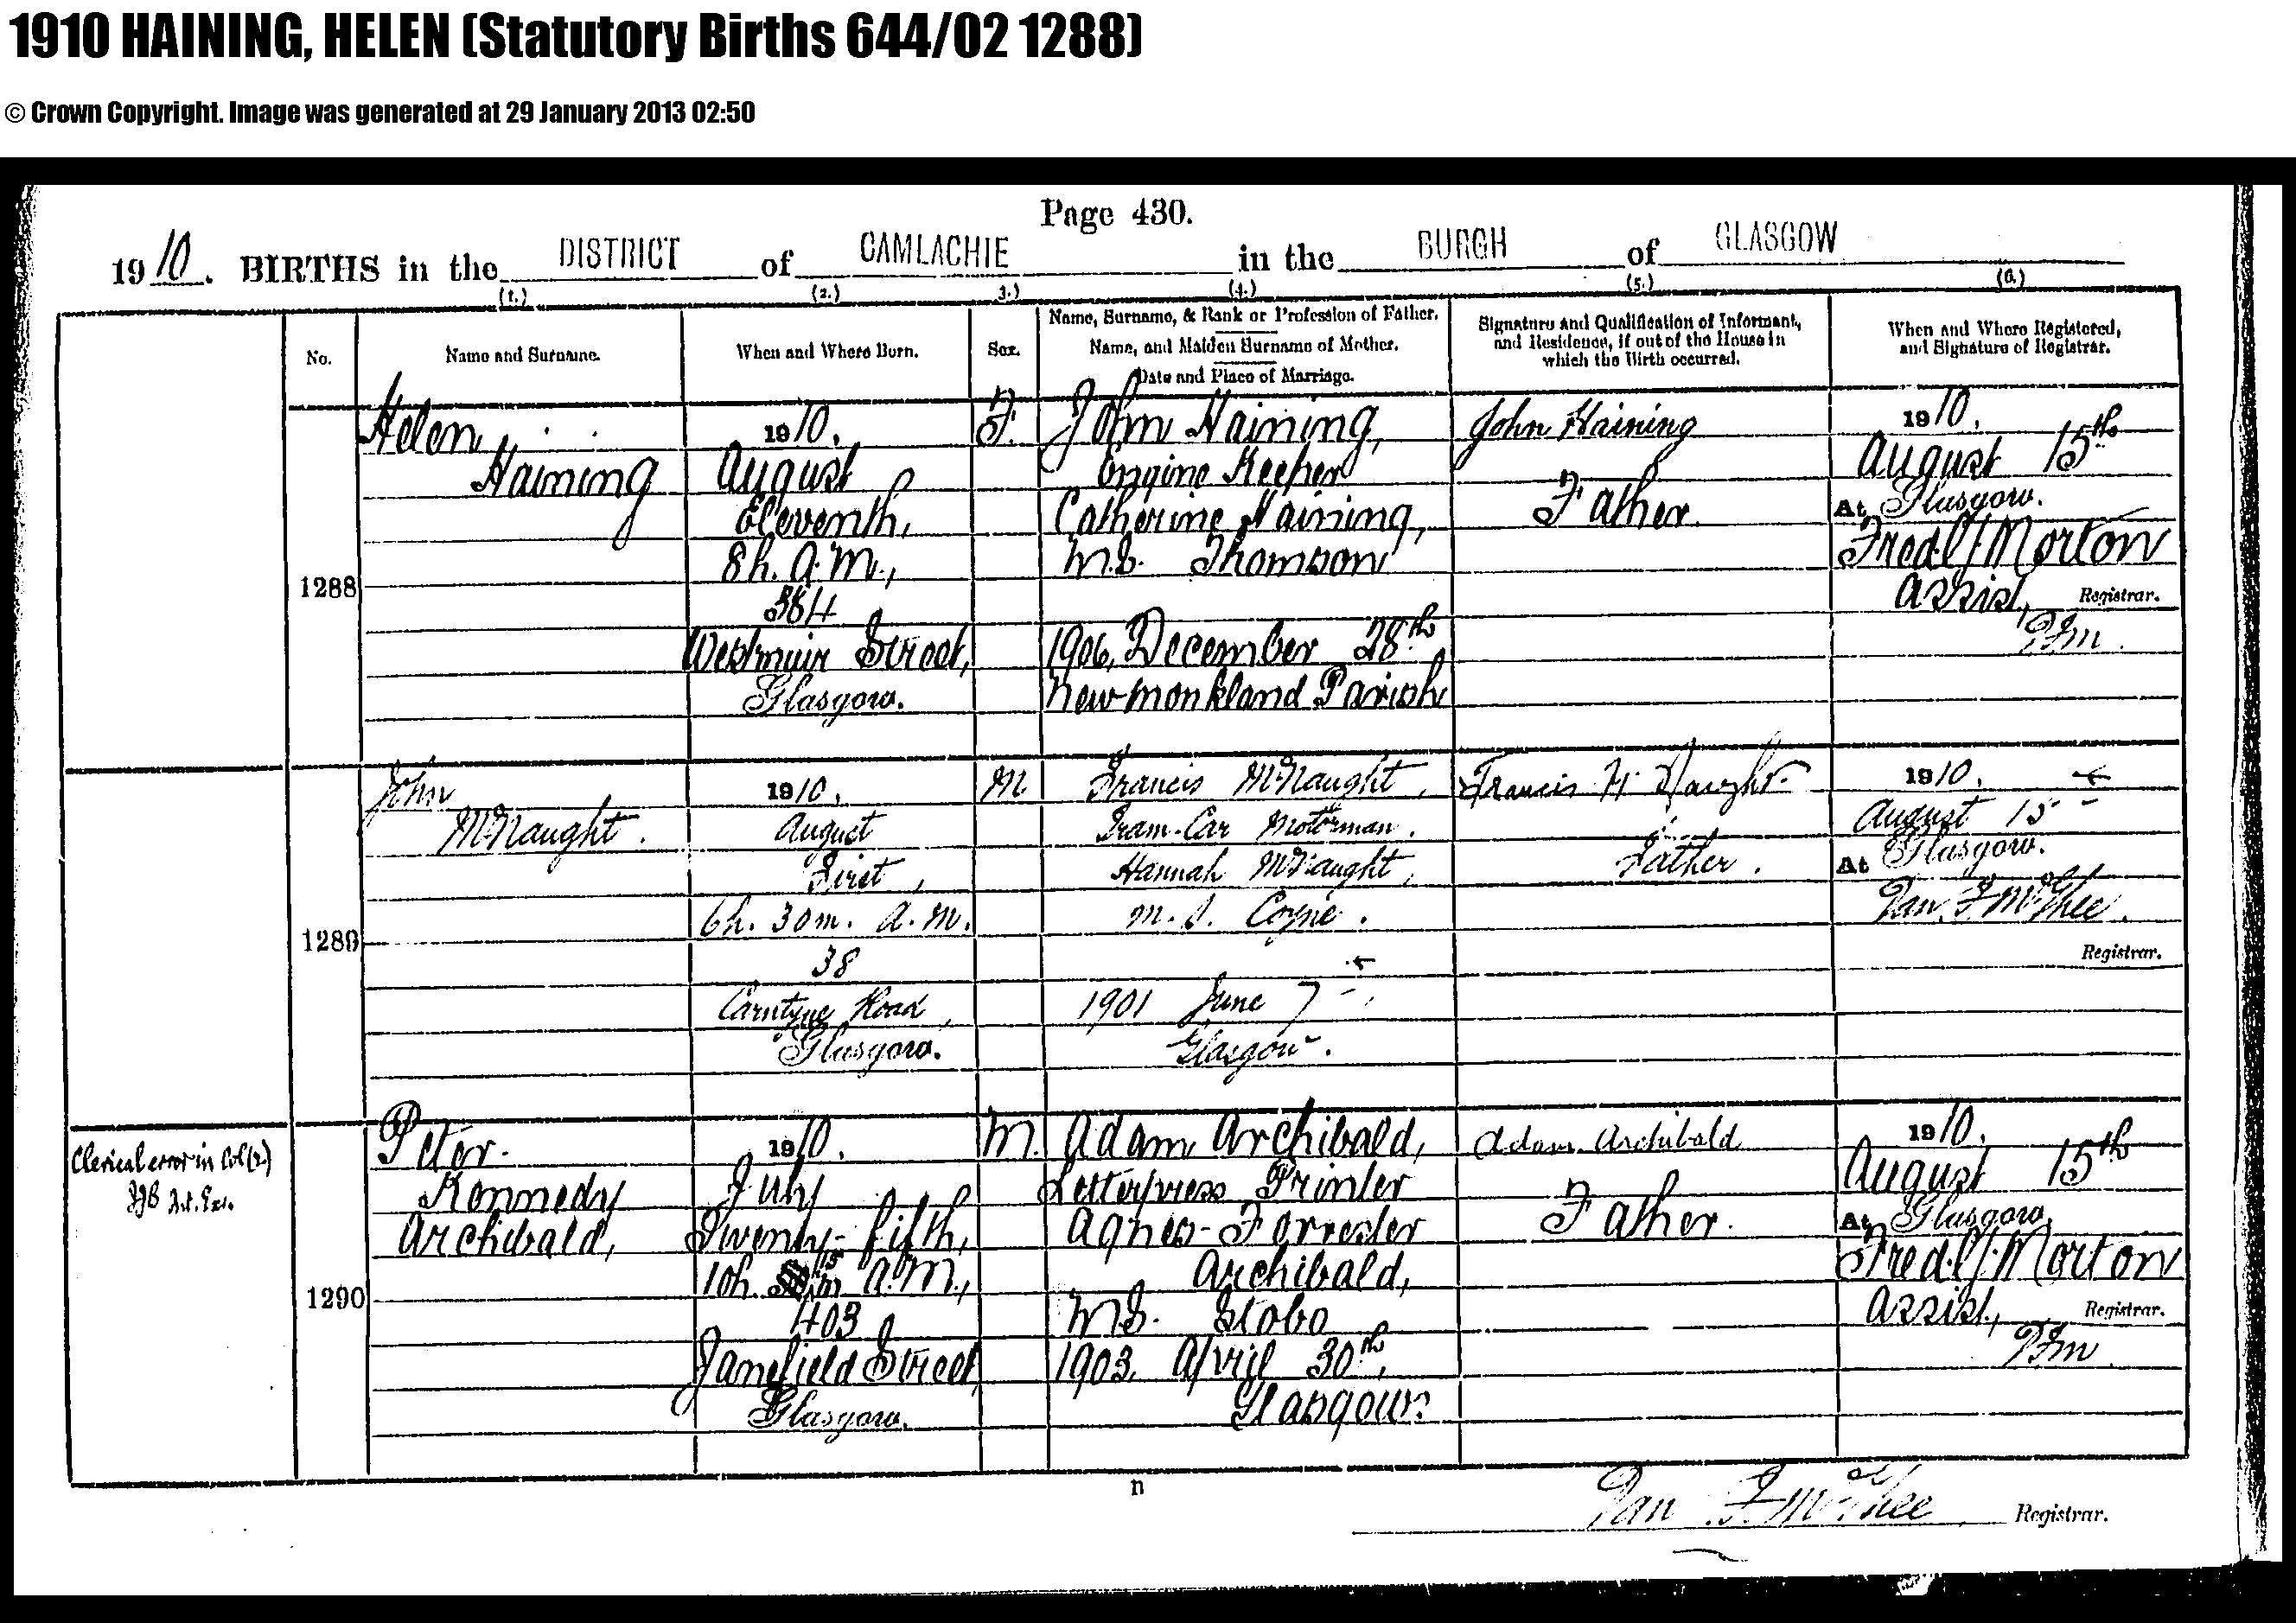 1910 HAINING, HELEN (Statutory Births 644/02 1288)
© Crown Copyright. Image was generated at 29 January 2013 02:50
Page 430.
1910. BIRTHS in the DISTRICT of CAMLACHIE in the BURGH of GLASGOW
(1.) (2.) 3.) (4.) (5.) (6.)
No.
Name and Surname.
When and Where Born.
Sex.
Name, Surname, & Rank or Profession of Father.
Name, and Maiden Surname of Mother.
Date and Place of Marriage.
Signature and Qualification of Informant,
and Residence, if out of the House in
which the Birth occurred.
When and Where Registered,
and Signature of Registrar.
1288
Helen
Haining
1910.
August
Eleventh,
8h. A.M.,
384
Westmuir Street,
Glasgow.
F.
John Haining,
Engine Keeper
Catherine Haining,
M.S. Thomson
1906, December 28th
New Monkland Parish
John Haining
Father.
1910.
August 15th
At Glasgow.
Fredk J Morton
Assist, Registrar.
1289
John
McNaught.
1910.
August
First,
6h. 30m. A.M.
38
Carntyne Road,
Glasgow.
M
Francis McNaught,
Tram-Car Motorman.
Hannah McNaught,
M.S. Coyne.
1901 June 7th,
Glasgow.
Francis McNaught
Father.
1910.
August 15th
At Glasgow.
Dan. F. McGhee.
Registrar.
Clerical error in Col (2)
1290
Peter
Kennedy
Archibald,
1910.
July
Twenty-fifth,
10h. 15m A.M.,
403
Janefield Street,
Glasgow.
M.
Adam Archibald,
Letterpress Printer
Agnes-Forrester
Archibald,
M.S. Stobo
1903, April 30th,
Glasgow.
Adam Archibald
Father.
1910.
August 15th
At Glasgow
Fredk J Morton
Assist, Registrar.
n
Dan F. McGhee Registrar.